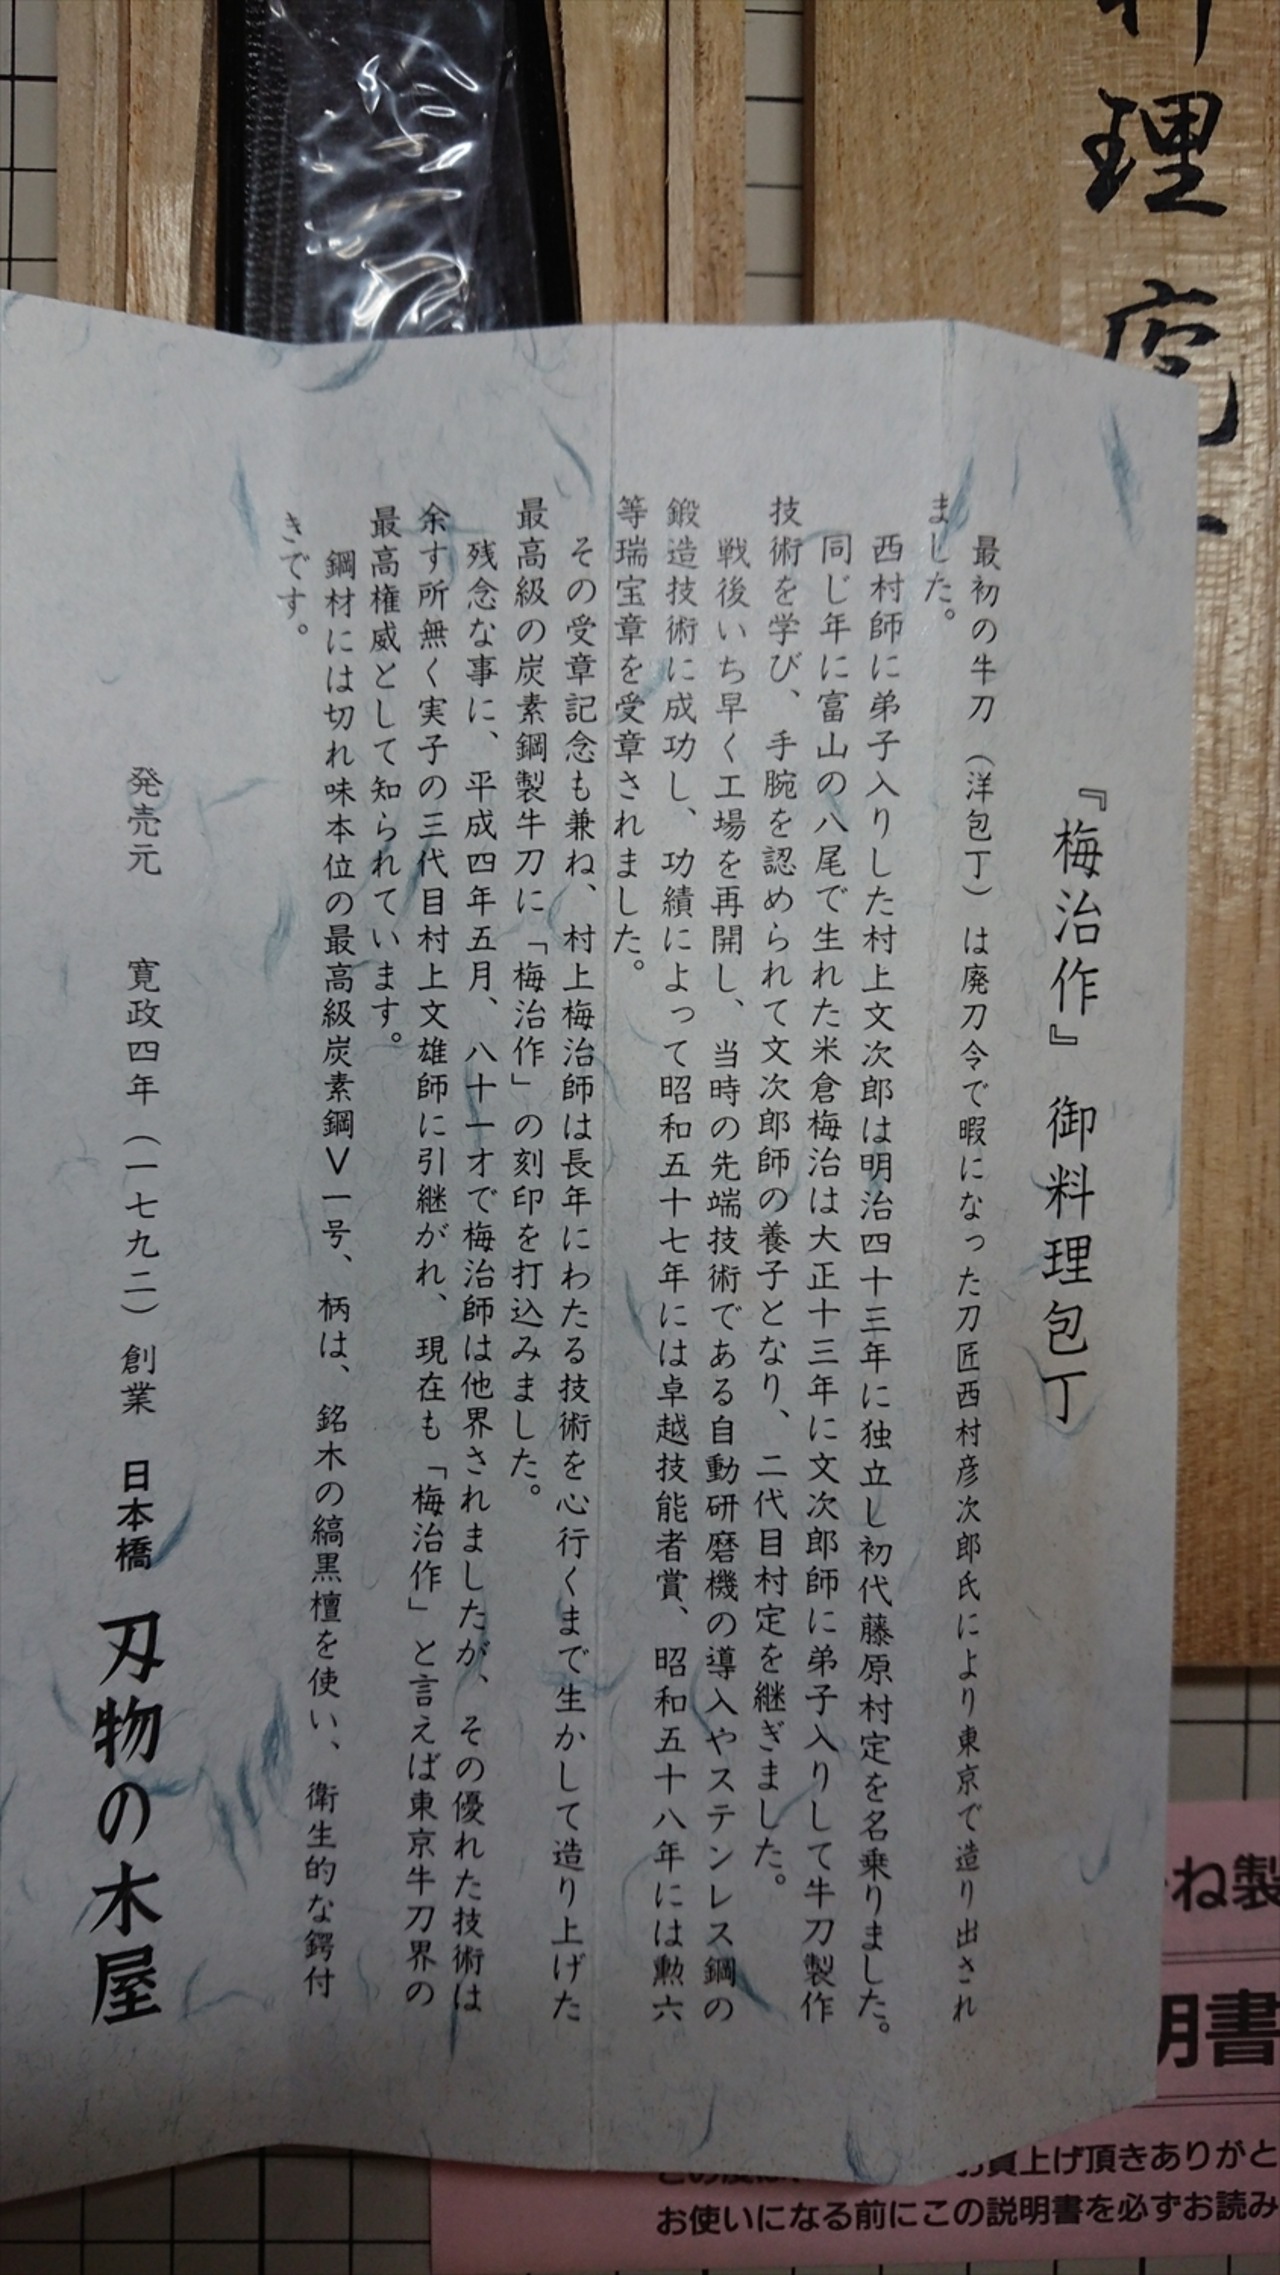 『梅治作』 御料理包丁
最初の牛刀（洋包丁）は廃刀令で暇になった刀匠西村彦次郎氏により東京で造り出され
ました。
西村師に弟子入りした村上文次郎は明治四十三年に独立し初代藤原村定を名乗りました。
同じ年に富山の八尾で生れた米倉梅治は大正十三年に文次郎師に弟子入りして牛刀製作
技術を学び、手腕を認められて文次郎師の養子となり、二代目村定を継ぎました。
戦後いち早く工場を再開し、当時の先端技術である自動研磨機の導入やステンレス鋼の
鍛造技術に成功し、功績によって昭和五十七年には卓越技能者賞、昭和五十八年には勲六
等瑞宝章を受章されました。
その受章記念も兼ね、村上梅治師は長年にわたる技術を心行くまで生かして造り上げた
最高級の炭素鋼製牛刀に「梅治作」の刻印を打込みました。
残念な事に、平成四年五月、八十一才で梅治師は他界されましたが、その優れた技術は
余す所無く実子の三代目村上文雄師に引継がれ、現在も「梅治作」と言えば東京牛刀界の
最高権威として知られています。
鋼材には切れ味本位の最高級炭素鋼V一号、柄は、銘木の縞黒檀を使い、衛生的な鍔付
きです。
発売元 寛政四年（一七九二）創業 日本橋 刃物の木屋
理
ね製
明書
お買上げ頂きありがと
お使いになる前にこの説明書を必ずお読み